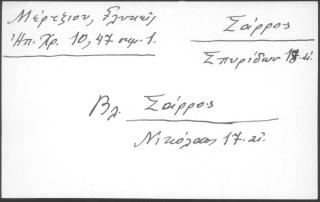 Μέρτζιου, Γλυκεῖς
Ἠπ. Χρ. 10, 47 σημ. 1.
Σάρρος
Σπυρίδων 17. αἰ.
Βλ. Σάρρος
Νικόλαος 17. αἰ.